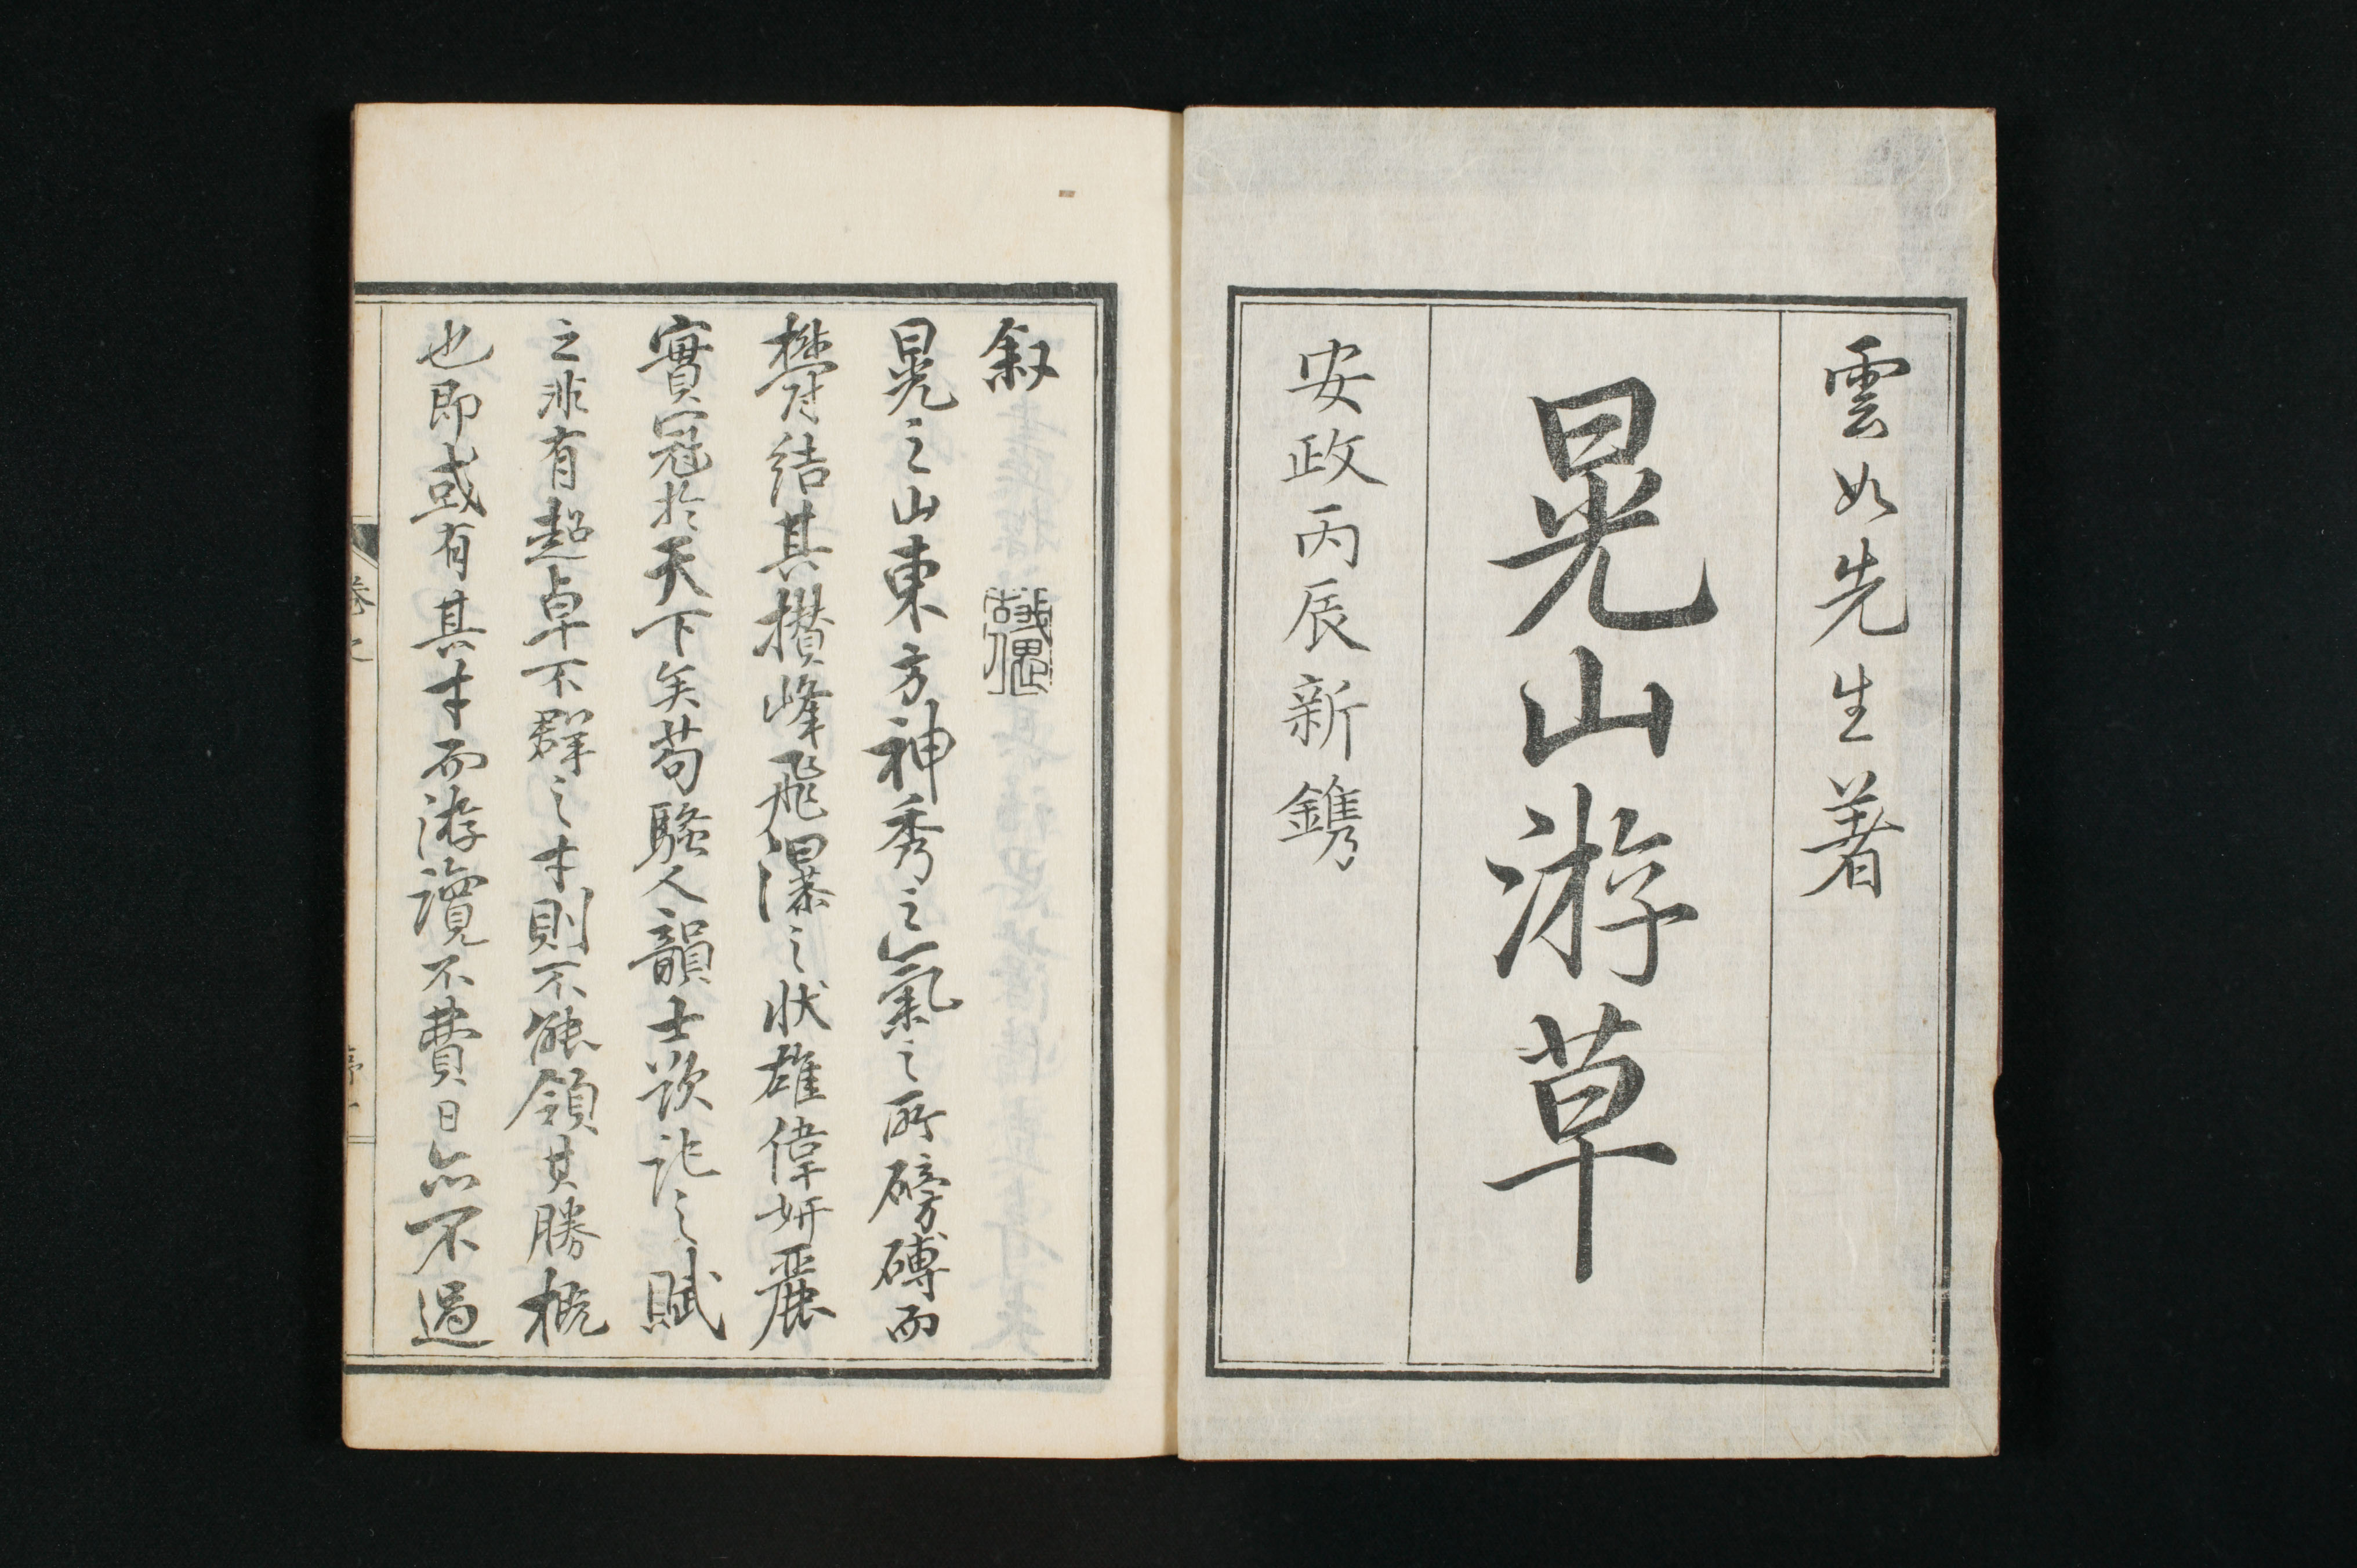 雲如先生著
晃山游草
安政丙辰新鐫
叙
晃之山東方神秀之氣之所磅礴而
欝結其攅峰飛瀑之状雄偉妍麗
實冠於天下矣苟騷人韻士欲記之賦
之非有超卓不群之才則不能領其勝概
也即或有其才而游讀不費日亦不過